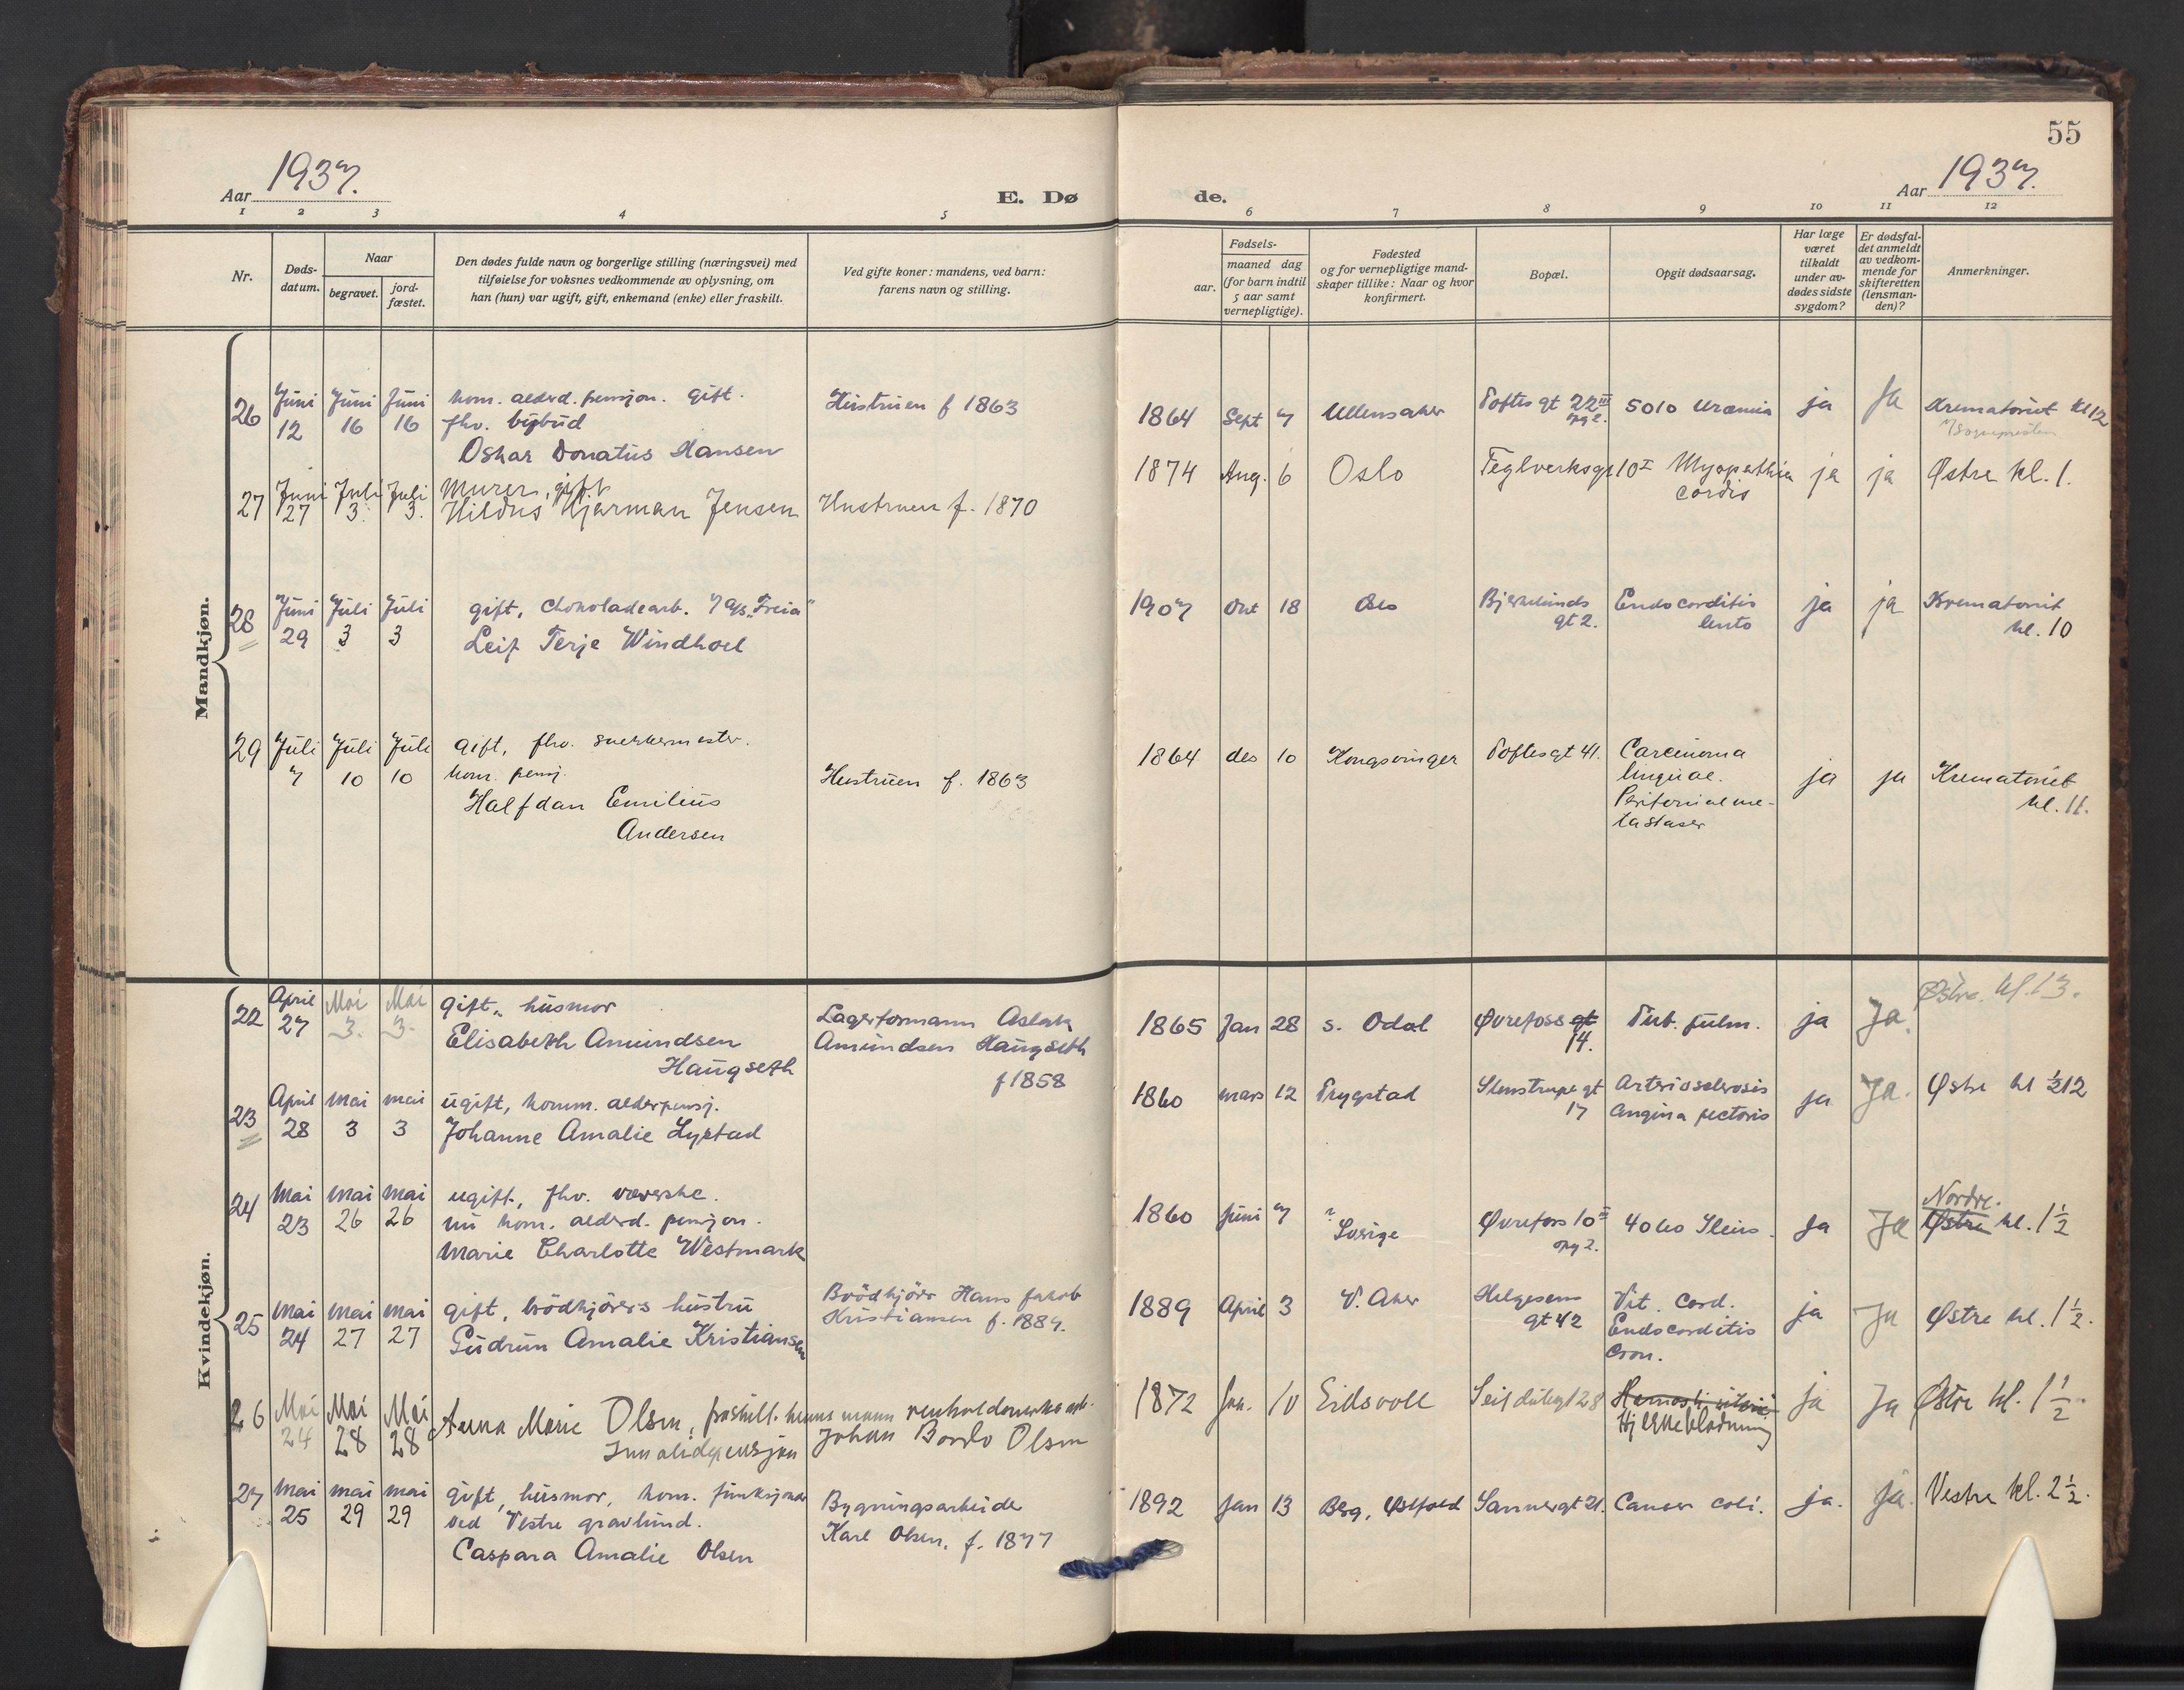 55
Aar 1937.
E. Dø
de.
Aar 1937.
1 2 3 4 5 6 7 8 9 10 11 12
Nr.
Døds-
datum.
Naar
begravet.
jord-
fæstet.
Den dødes fulde navn og borgerlige stilling (næringsvei) med
tilføielse for voksnes vedkommende av oplysning, om
han (hun) var ugift, gift, enkemand (enke) eller fraskilt.
Ved gifte koner: mandens, ved barn:
farens navn og stilling.
Fødsels-
aar.
maaned dag
(for barn indtil
5 aar samt
vernepligtige).
Fødested
og for vernepligtige mand-
skaper tillike: Naar og hvor
konfirmert.
Bopæl.
Opgit dødsaarsag.
Har læge
været
tilkaldt
under av-
dødes sidste
sygdom?
Er dødsfal-
det anmeldt
av vedkom-
mende for
skifteretten
(lensman-
den)?
Anmerkninger.
Mandkjøn.
26
Juni
12
Juni
16
Juni
16
kom. alderd. pensjon. gift.
fhv. bybud
Oskar Donatus Hansen
Hustruen f 1863
1864 Sept 7 Ullensaker
Toftes gt 22 III
opg 2.
5010 Uræmia
ja
Ja
Krematoriet kl 12
27
Juni
27
Juli
3.
Juli
3.
Murer, gift
Hildus Hjarman Jensen
Hustruen f. 1870
1874 Aug. 6 Oslo
Teglverksgt 10 I
Myopathia
cordis
ja
ja
Østre kl. 1.
28
Juni
29
Juli
3
Juli
3
gift, chokoladearb. i A/s „Freia"
Leif Terje Windhoel
1907 Okt 18 Oslo
Bjerkelunds
gt 2.
Endocorditis
lento
ja
ja
Krematoriet
kl. 10
29
Juli
7
Juli
10
Juli
10
gift, fhv. snekkermester.
kom. pensj.
Halfdan Emilius
Andersen
Hustruen f. 1863
1864 des 10 Kongsvinger
Toftes gt 41.
Carcinoma
linguae.
Peritonial me-
tastaser
ja
ja
Krematoriet
kl. 11.
Kvindekjøn.
22
April
27
Mai
3.
Mai
3.
gift, husmor
Elisabeth Amundsen
Haugseth
Lagerformann Aslak
Amundsen Haugseth
f 1858
1865 Jan 28 S. Odal
Øvrefoss gt
14.
Tub. pulm.
ja
Ja.
Østre. kl. 13.
23
April
28
mai
3
mai
3
ugift, komm. alderpensj.
Johanne Amalie Lystad
1860 mars 12 Trygstad
Stenstrups gt
17
Arteriosclerosis
Angina pectoris
ja
Ja.
Østre kl ½12
24
Mai
23
mai
26
mai
26
ugift, fhv. veverske.
nu kom. alderd. pensjon.
Marie Charlotte Westmark
1860 Juni 7
i
Sverige
Øvrefoss 10 III
opg 2.
4060 Ileus.
Ja
Ja
Nordre.
Østre kl. 1½
25
Mai
24
mai
27
mai
27
gift, brödkjörers hustru
Gudrun Amalie Kristiansen
Brödkjörer Hans Jakob
Kristiansen f. 1889.
1889 April 3 V. Aker
Helgesens
gt 42
Vit. Cord.
Endocorditis
Cron.
ja
Ja
Østre kl. 1½.
26
Mai
24
Mai
28
Mai
28
Anna Marie Olsen, fraskilt. hennes mann renholdsverks arb.
Invalidepensjon Johan Bordo Olsen
1872 Jan. 10 Eidsvoll
Seilduksgt 28
Hjernebladning
ja
Ja
Østre kl. 1½.
27
Mai
25
mai
29
mai
29
gift, husmor, kom. funksjonær
ved Vestre gravlund.
Caspara Amalie Olsen
Bygningsarbeider
Karl Olsen, f. 1877
1892 Jan 13 Berg, Østfold
Sannergt 21.
Cancer coli.
ja.
ja.
Vestre kl. 2½.